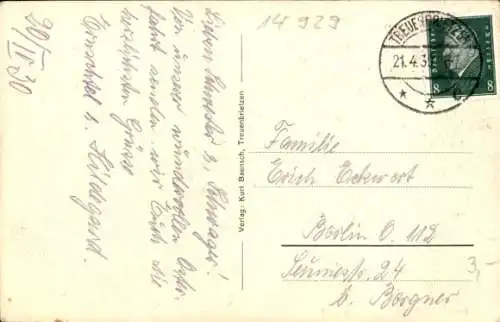 20/IV. 30
Liebe Schwester u. Schwager!
Von unserer wundervollen Oster-
fahrt senden wir Euch die
herzlichsten Grüsse
u. Hildegard.
Verlag: Kurt Baenisch, Treuenbrietzen
14 929
TREUENBRIETZEN
21.4.3
8 8
Familie
Erich Eckwert
Berlin O. 112
Seumestr. 24
b. Borgner
3,-